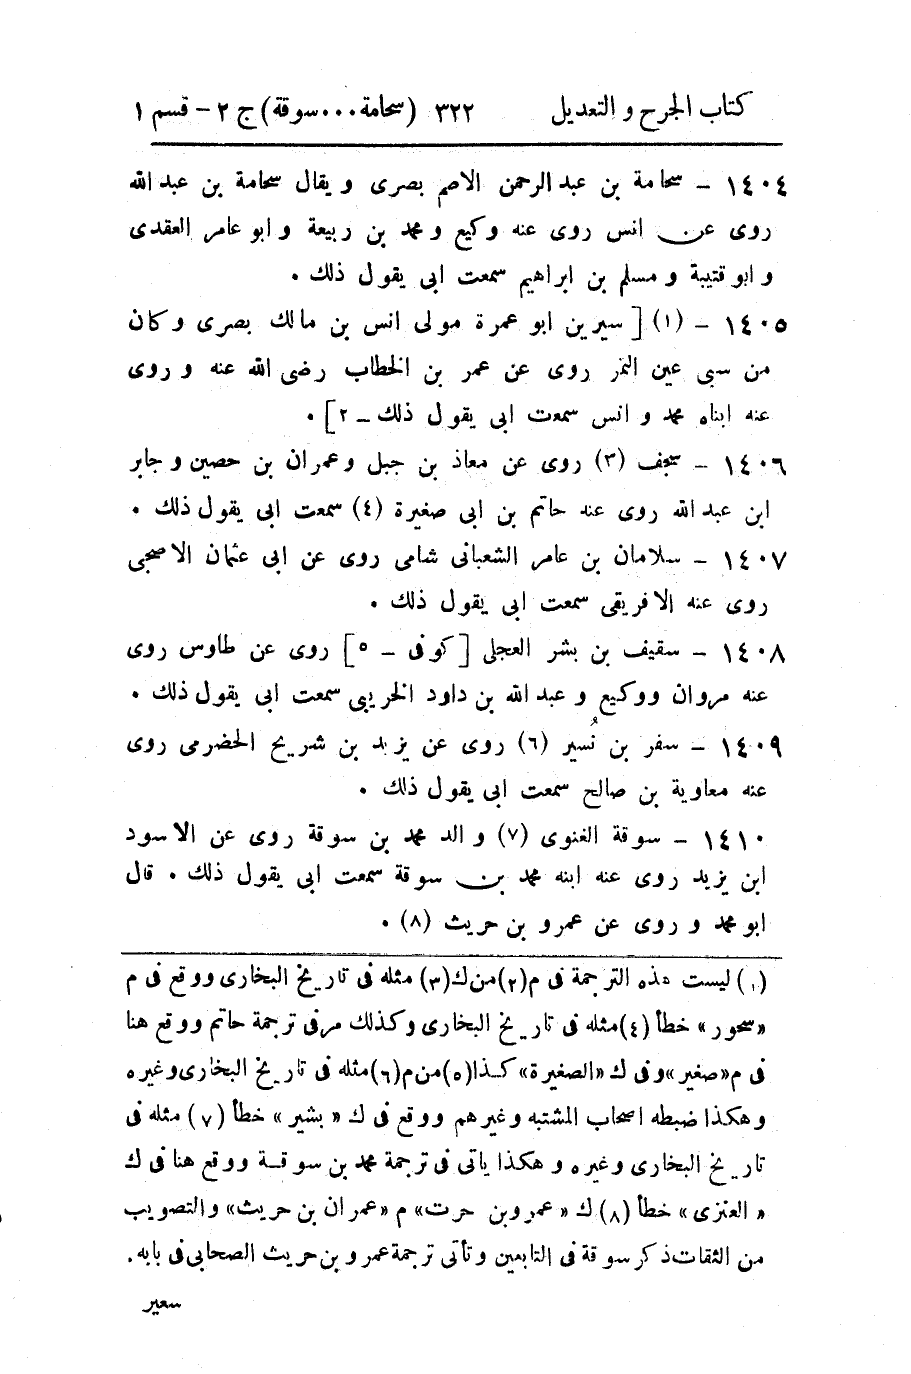 كتاب الجرح و التعديل ٣٢٢ (سحامة...سوقة) ج ٢ – قسم ١
١٤٠٤ – سحامة بن عبد الرحمن الاصم بصرى و يقال سحامة بن عبد الله
روى عن انس روى عنه وكيع و محمد بن ربيعة و ابو عامر العقدى
و ابو قتيبة و مسلم بن ابراهيم سمعت ابى يقول ذلك .
١٤٠٥ – (١) [ سيرين ابو عمرة مولى انس بن مالك بصرى و كان
من سبى عين التمر روى عن عمر بن الخطاب رضى الله عنه و روى
عنه ابناه محمد و انس سمعت ابى يقول ذلك – ٢] .
١٤٠٦ – سجف (٣) روى عن معاذ بن جبل و عمران بن حصين و جابر
ابن عبد الله روى عنه حاتم بن ابى صغيرة (٤) سمعت ابى يقول ذلك .
١٤٠٧ – سلامان بن عامر الشعبانى شامى روى عن ابى عثمان الاصبحى
روى عنه الافريقى سمعت ابى يقول ذلك .
١٤٠٨ – سقيف بن بشر العجلى [ كوفى – ٥ ] روى عن طاوس روى
عنه مروان ووكيع و عبد الله بن داود الخريبى سمعت ابى يقول ذلك .
١٤٠٩ – سفر بن نُسير (٦) روى عن يزيد بن شريح الحضرمى روى
عنه معاوية بن صالح سمعت ابى يقول ذلك .
١٤١٠ – سوقة الغنوى (٧) و الد محمد بن سوقة روى عن الاسود
ابن يزيد روى عنه ابنه محمد بن سوقة سمعت ابى يقول ذلك . قال
ابو محمد و روى عن عمرو بن حريث (٨) .
(١) ليست هذه الترجمة فى م (٢) من ك (٣) مثله فى تاريخ البخارى ووقع فى م
«سحور» خطأ (٤) مثله فى تاريخ البخارى وكذلك مر فى ترجمة حاتم ووقع هنا
فى م «صغير» وفى ك «الصغيرة» كذا (٥) من م (٦) مثله فى تاريخ البخارى وغيره
وهكذا ضبطه اصحاب المشتبه وغيرهم ووقع فى ك «بشير» خطأ (٧) مثله فى
تاريخ البخارى وغيره و هكذا ياتى فى ترجمة محمد بن سوقة ووقع هنا فى ك
«العنزى» خطأ (٨) ك «عمرو بن حرت» م «عمران بن حريث» والتصويب
من الثقات ذكر سوقة فى التابعين وتأتى ترجمة عمرو بن حريث الصحابى فى بابه.
سعير